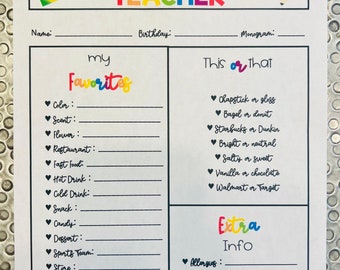 TEACHER
Name: Birthday: Monogram:
my
Favorites
Color :
Scent :
Flavor :
Restaurant :
Fast Food:
Hot Drink:
Cold Drink:
Snack :
Candy:
Dessert :
Sports Team:
Store :
This or that
Chapstick or gloss
Bagel or donut
Starbucks or Dunkin
Bright or neutral
Salty or sweet
Vanilla or chocolate
Walmart or Target
Extra
Info
Allergies :